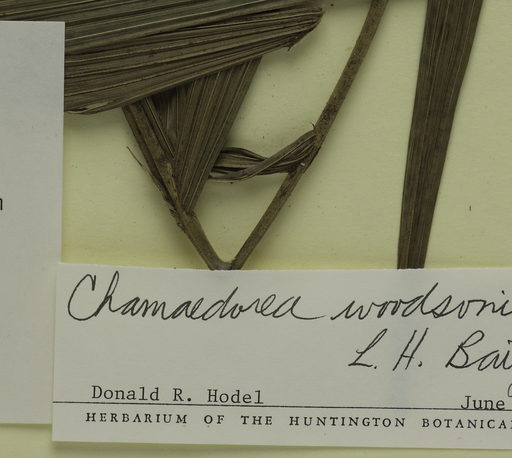 Chamaedorea woodsoni
L. H. Bai
Donald R. Hodel June
HERBARIUM OF THE HUNTINGTON BOTANICA